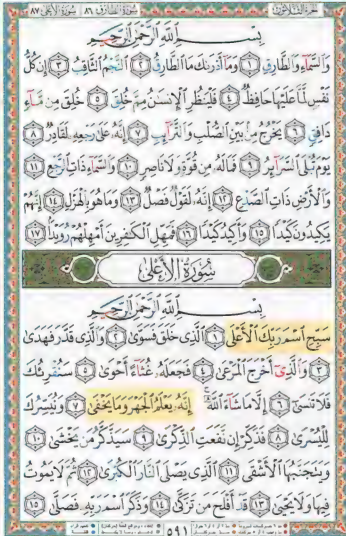 سُورَةُ الطَّارِقِ ٨٦ سُورَةُ الأَعْلَى ٨٧
بِسْمِ ٱللَّهِ ٱلرَّحْمَٰنِ ٱلرَّحِيمِ
وَٱلسَّمَآءِ وَٱلطَّارِقِ ١ وَمَآ أَدْرَىٰكَ مَا ٱلطَّارِقُ ٢ ٱلنَّجْمُ ٱلثَّاقِبُ ٣ إِن كُلُّ
نَفْسٍ لَّمَّا عَلَيْهَا حَافِظٌ ٤ فَلْيَنظُرِ ٱلْإِنسَٰنُ مِمَّ خُلِقَ ٥ خُلِقَ مِن مَّآءٍ
دَافِقٍ ٦ يَخْرُجُ مِنۢ بَيْنِ ٱلصُّلْبِ وَٱلتَّرَآئِبِ ٧ إِنَّهُۥ عَلَىٰ رَجْعِهِۦ لَقَادِرٌ ٨
يَوْمَ تُبْلَى ٱلسَّرَآئِرُ ٩ فَمَا لَهُۥ مِن قُوَّةٍ وَلَا نَاصِرٍ ١٠ وَٱلسَّمَآءِ ذَاتِ ٱلرَّجْعِ ١١
وَٱلْأَرْضِ ذَاتِ ٱلصَّدْعِ ١٢ إِنَّهُۥ لَقَوْلٌ فَصْلٌ ١٣ وَمَا هُوَ بِٱلْهَزْلِ ١٤ إِنَّهُمْ
يَكِيدُونَ كَيْدًا ١٥ وَأَكِيدُ كَيْدًا ١٦ فَمَهِّلِ ٱلْكَٰفِرِينَ أَمْهِلْهُمْ رُوَيْدًۢا ١٧
سُورَةُ الأَعْلَى
بِسْمِ ٱللَّهِ ٱلرَّحْمَٰنِ ٱلرَّحِيمِ
سَبِّحِ ٱسْمَ رَبِّكَ ٱلْأَعْلَى ١ ٱلَّذِى خَلَقَ فَسَوَّىٰ ٢ وَٱلَّذِى قَدَّرَ فَهَدَىٰ
٣ وَٱلَّذِىٓ أَخْرَجَ ٱلْمَرْعَىٰ ٤ فَجَعَلَهُۥ غُثَآءً أَحْوَىٰ ٥ سَنُقْرِئُكَ
فَلَا تَنسَىٰٓ ٦ إِلَّا مَا شَآءَ ٱللَّهُ ۚ إِنَّهُۥ يَعْلَمُ ٱلْجَهْرَ وَمَا يَخْفَىٰ ٧ وَنُيَسِّرُكَ
لِلْيُسْرَىٰ ٨ فَذَكِّرْ إِن نَّفَعَتِ ٱلذِّكْرَىٰ ٩ سَيَذَّكَّرُ مَن يَخْشَىٰ ١٠
وَيَتَجَنَّبُهَا ٱلْأَشْقَى ١١ ٱلَّذِى يَصْلَى ٱلنَّارَ ٱلْكُبْرَىٰ ١٢ ثُمَّ لَا يَمُوتُ
فِيهَا وَلَا يَحْيَىٰ ١٣ قَدْ أَفْلَحَ مَن تَزَكَّىٰ ١٤ وَذَكَرَ ٱسْمَ رَبِّهِۦ فَصَلَّىٰ ١٥
٥٩١